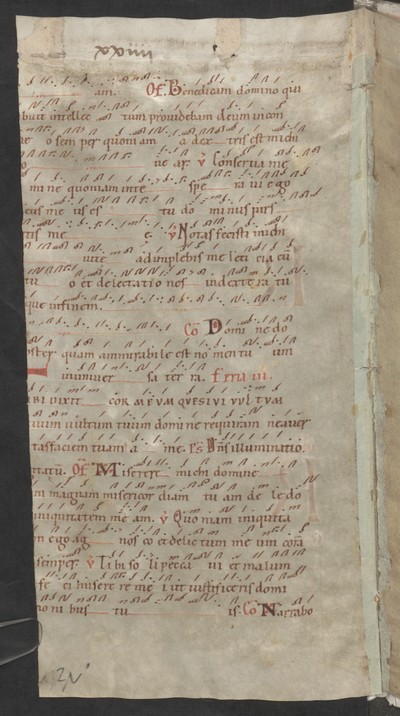 am. Of. Benedicam domino qui
buit intellec tum providebam deum in con
o semper quoniam a dex tris est michi
ne ar. V Conserva me
mi ne quoniam in te spe ra vi ego
eus me us es tu do minus pars
tis me e. V Notas fecisti michi
vite adimplebis me leti cia cu
tu o et delectatio nes in dextera tu
que in finem.
Co Domi ne do
oster quam ammirabile est no men tu um
in univer sa ter ra. Feria iii.
IBI DIXIT COR MEUM QUESIVI VULTUM
uum vultum tuum domi ne requiram ne aver
tas faciem tuam a me. Ps Dns illuminatio.
Of. Miserere michi domine
m magnam misericor diam tu am de le do
iniquitatem me am. V Quo niam iniquita
n ego ag nos co et delic tum me um cora
semper. V Ti bi so li pecca vi et malum
fe ci misere re me i ut iustificeris domi
mo ni bus tu is. Co Narrabo